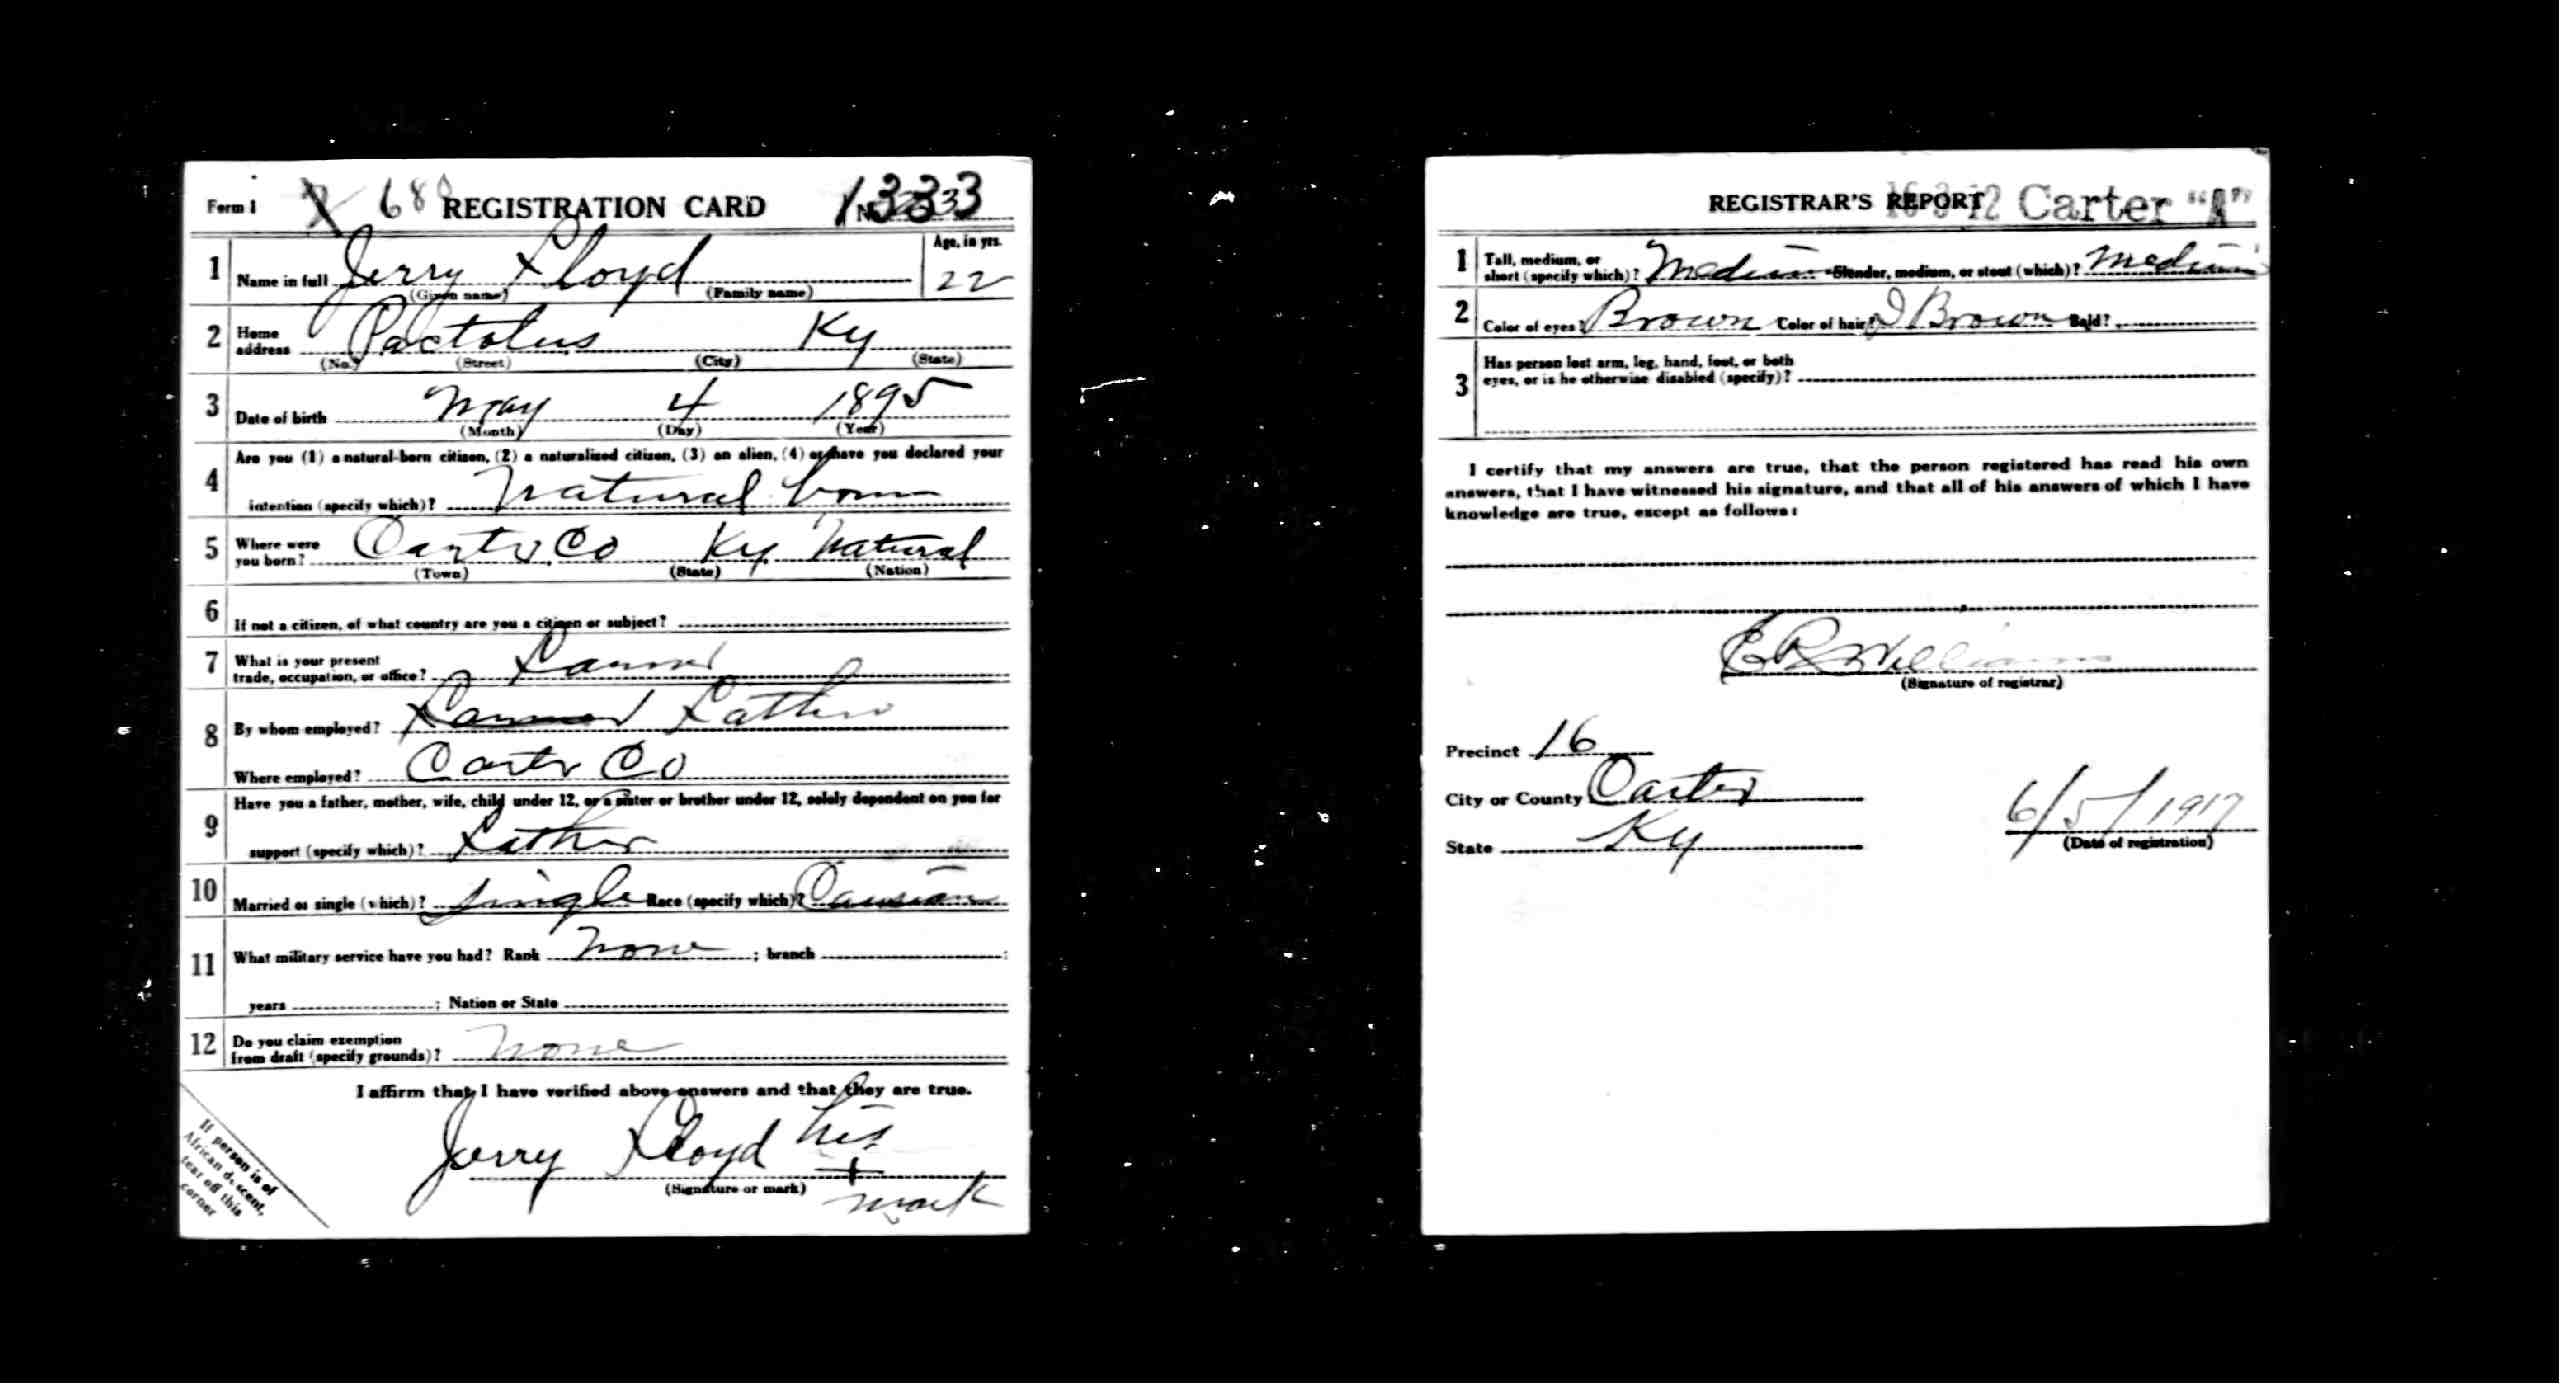 Form 1 X 68 REGISTRATION CARD 1333
1 Name in full Jerry Floyd Age, in yrs. 22
(Given name) (Family name)
2 Home address Pactolus Ky
(No.) (Street) (City) (State)
3 Date of birth May 4 1895
(Month) (Day) (Year)
4 Are you (1) a natural-born citizen, (2) a naturalized citizen, (3) an alien, (4) or have you declared your
intention (specify which)? Natural born
5 Where were you born? Carter Co Ky Natural
(Town) (State) (Nation)
6 If not a citizen, of what country are you a citizen or subject?
7 What is your present trade, occupation, or office? Farmer
8 By whom employed? Father
Where employed? Carter Co
9 Have you a father, mother, wife, child under 12, or a sister or brother under 12, solely dependent on you for
support (specify which)? Father
10 Married or single (which)? Single Race (specify which)?
11 What military service have you had? Rank None ; branch ;
years ; Nation or State
12 Do you claim exemption from draft (specify grounds)? None
I affirm that I have verified above answers and that they are true.
Jerry Floyd his
+
(Signature or mark) mark
If person is of
African descent,
tear off this
corner
REGISTRAR'S REPORT Carter "A"
1 Tall, medium, or short (specify which)? Medium Slender, medium, or stout (which)? Medium
2 Color of eyes? Brown Color of hair? D Brown Bald?
3 Has person lost arm, leg, hand, foot, or both
eyes, or is he otherwise disabled (specify)?
I certify that my answers are true, that the person registered has read his own
answers, that I have witnessed his signature, and that all of his answers of which I have
knowledge are true, except as follows:
E R Williams
(Signature of registrar)
Precinct 16
City or County Carter
State Ky
6/5/1917
(Date of registration)